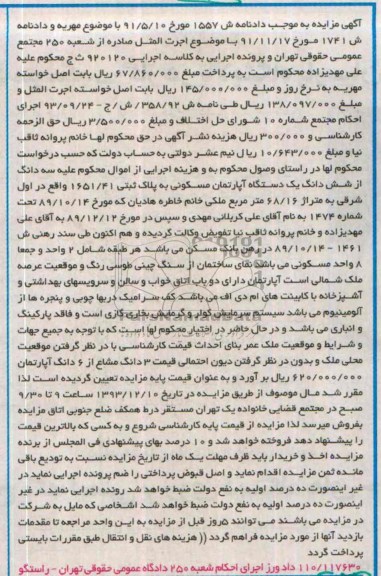 آگهی مزایده به موجب دادنامه ش ۱۵۵۷ مورخ ۹۱/۵/۱۰ با موضوع مهریه و دادنامه
ش ۱۷۴۱ مورخ ۹۱/۱۱/۱۷ با موضوع اجرت المثل صادره از شعبه ۲۵۰ مجتمع
عمومی حقوقی تهران و پرونده اجرایی به کلاسه اجرایی ۹۲۰۱۲۰ ث ج محکوم علیه
علی مهدیزاده محکوم است به پرداخت مبلغ ۶۷/۸۶۰/۰۰۰ ریال بابت اصل خواسته
مهریه به نرخ روز و مبلغ ۱۴۵/۰۰۰/۰۰۰ ریال بابت اصل خواسته اجرت المثل و
مبلغ ۱۳۸/۰۹۷/۰۰۰ ریال طی نامه ش ۳۵۸/۹۲ / ش / ج - ۹۳/۰۹/۲۴ اجرای
احکام مجتمع شماره ۱۰ شورای حل اختلاف و مبلغ ۳/۵۰۰/۰۰۰ ریال حق الزحمه
کارشناسی و ۳۰۰/۰۰۰ ریال هزینه نشر آگهی در حق محکوم لها خانم پروانه ثاقب
نیا و مبلغ ۱۰/۶۴۳/۰۰۰ ریال نیم عشر دولتی به حساب دولت که حسب درخواست
محکوم لها در راستای وصول محکوم به و هزینه اجرایی از اموال محکوم علیه سه دانگ
از شش دانگ یک دستگاه آپارتمان مسکونی به پلاک ثبتی ۱۶۵۱/۴۱ واقع در اول
شرقی به متراژ ۶۸/۱۶ متر مربع ملکی خانم خاطره هادیان که مورخ ۸۹/۱۰/۱۴ تحت
شماره ۱۴۷۴ به نام آقای علی کربلائی مهدی و سپس در مورخ ۸۹/۱۲/۱۲ به آقای علی
مهدیزاده و خانم پروانه ثاقب نیا تفویض وکالت گردیده و هم اکنون طی سند رهنی ش
۱۴۶۱ - ۸۹/۱۰/۱۴ در رهن بانک مسکن می باشد هر طبقه شامل ۲ واحد و جمعا
۸ واحد مسکونی می باشد نمای ساختمان از سنگ چینی طوسی رنگ و موقعیت عرصه
ملک شمالی است آپارتمان دارای دو باب اتاق خواب و سالن و سرویسهای بهداشتی و
آشپزخانه با کابینت های ام دی اف می باشد کف سرامیک دربها چوبی و پنجره ها از
آلومینیوم می باشد سیستم سرمایش کولر و گرمایش بخاری گازی است و فاقد پارکینگ
و انباری می باشد و در حال حاضر در اختیار محکوم لها است که با توجه به جمیع جهات
و شرایط و موقعیت ملک عمر بنای احداث قیمت کارشناسی با در نظر گرفتن موقعیت
محلی ملک و بدون در نظر گرفتن دیون احتمالی قیمت ۳ دانگ مشاع از ۶ دانگ آپارتمان
۶۲۰/۰۰۰/۰۰۰ ریال بر آورد و به عنوان قیمت پایه مزایده تعیین گردیده است لذا
مقرر شد مال موصوف از طریق مزایده در تاریخ ۱۳۹۳/۱۲/۱۰ ساعت ۹ تا ۹/۳۰
صبح در مجتمع قضایی خانواده یک تهران مستقر در ط همکف ضلع جنوبی اتاق مزایده
بفروش میرسد لذا مزایده از قیمت پایه کارشناسی شروع و به کسی که بالاترین قیمت
را پیشنهاد دهد فروخته خواهد شد و ۱۰ درصد بهای پیشنهادی فی المجلس از برنده
مزایده اخذ و خریدار باید ظرف مهلت یک ماه از تاریخ مزایده نسبت به تودیع باقی
مانده ثمن مزایده اقدام نماید و اصل قبوض پرداختی را ضم پرونده اجرایی نماید در
غیر اینصورت ده درصد اولیه به نفع دولت ضبط خواهد شد رونده اجرایی نماید در غیر
اینصورت ده درصد اولیه به نفع دولت ضبط خواهد شد اشخاصی که مایل به شرکت
در مزایده می باشند می توانند ۵روز قبل از مزایده به این واحد مراجعه تا مقدمات
بازدید آنها از مورد مزایده فراهم گردد (( هزینه های نقل و انتقال طبق مقررات بایستی
پرداخت گردد
۱۱۰/۱۱۷۶۳۰ دادورز اجرای احکام شعبه ۲۵۰ دادگاه عمومی حقوقی تهران - راستگو